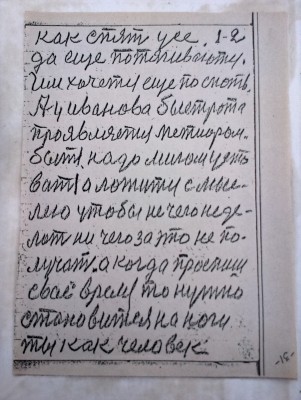 как спят усе. 1-2
да еще потягивают.
им хочется еще поспать
А у иванова быстрота
проявляется метиором.
быть надо милом уеть
ват а ложитис смыс-
лею утобы нечего неде-
лот ни чего за это не по-
лучат. а когда проспиш
своё время то нужно
становится на ноги
ты как человек
-16-